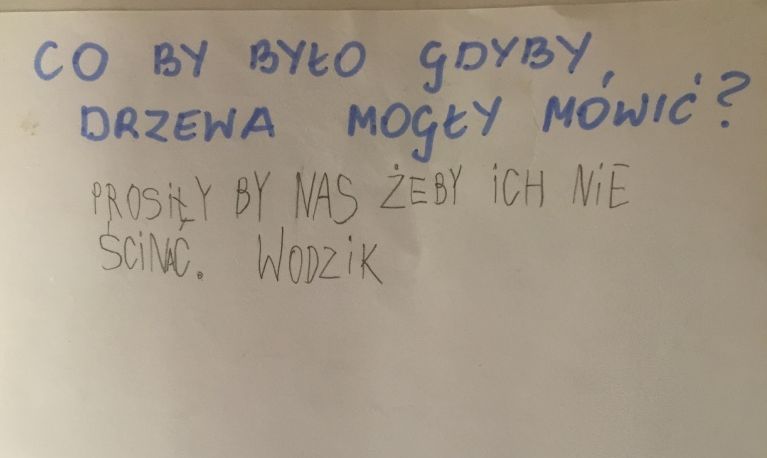 CO BY BYŁO GDYBY
DRZEWA MOGŁY MÓWIĆ?
PROSIŁY BY NAS ŻEBY ICH NIE
ŚCINAĆ. WODZIK